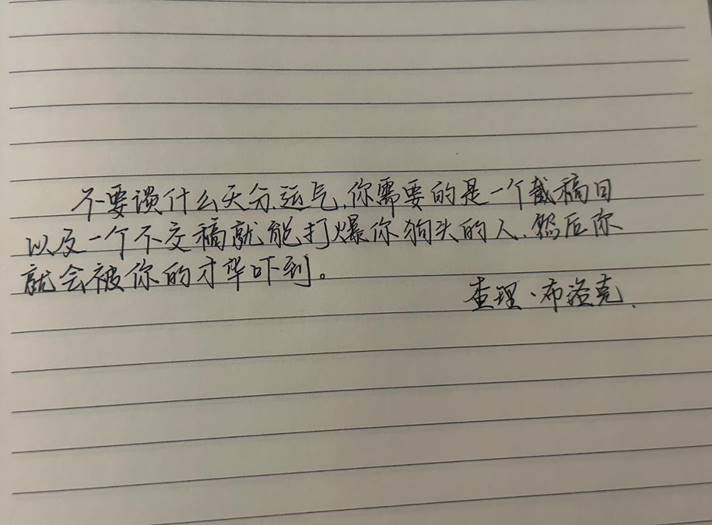 不要谈什么天分,运气,你需要的是一个截稿日
以及一个不交稿就能打爆你狗头的人,然后你
就会被你的才华吓到。
查理·布洛克.